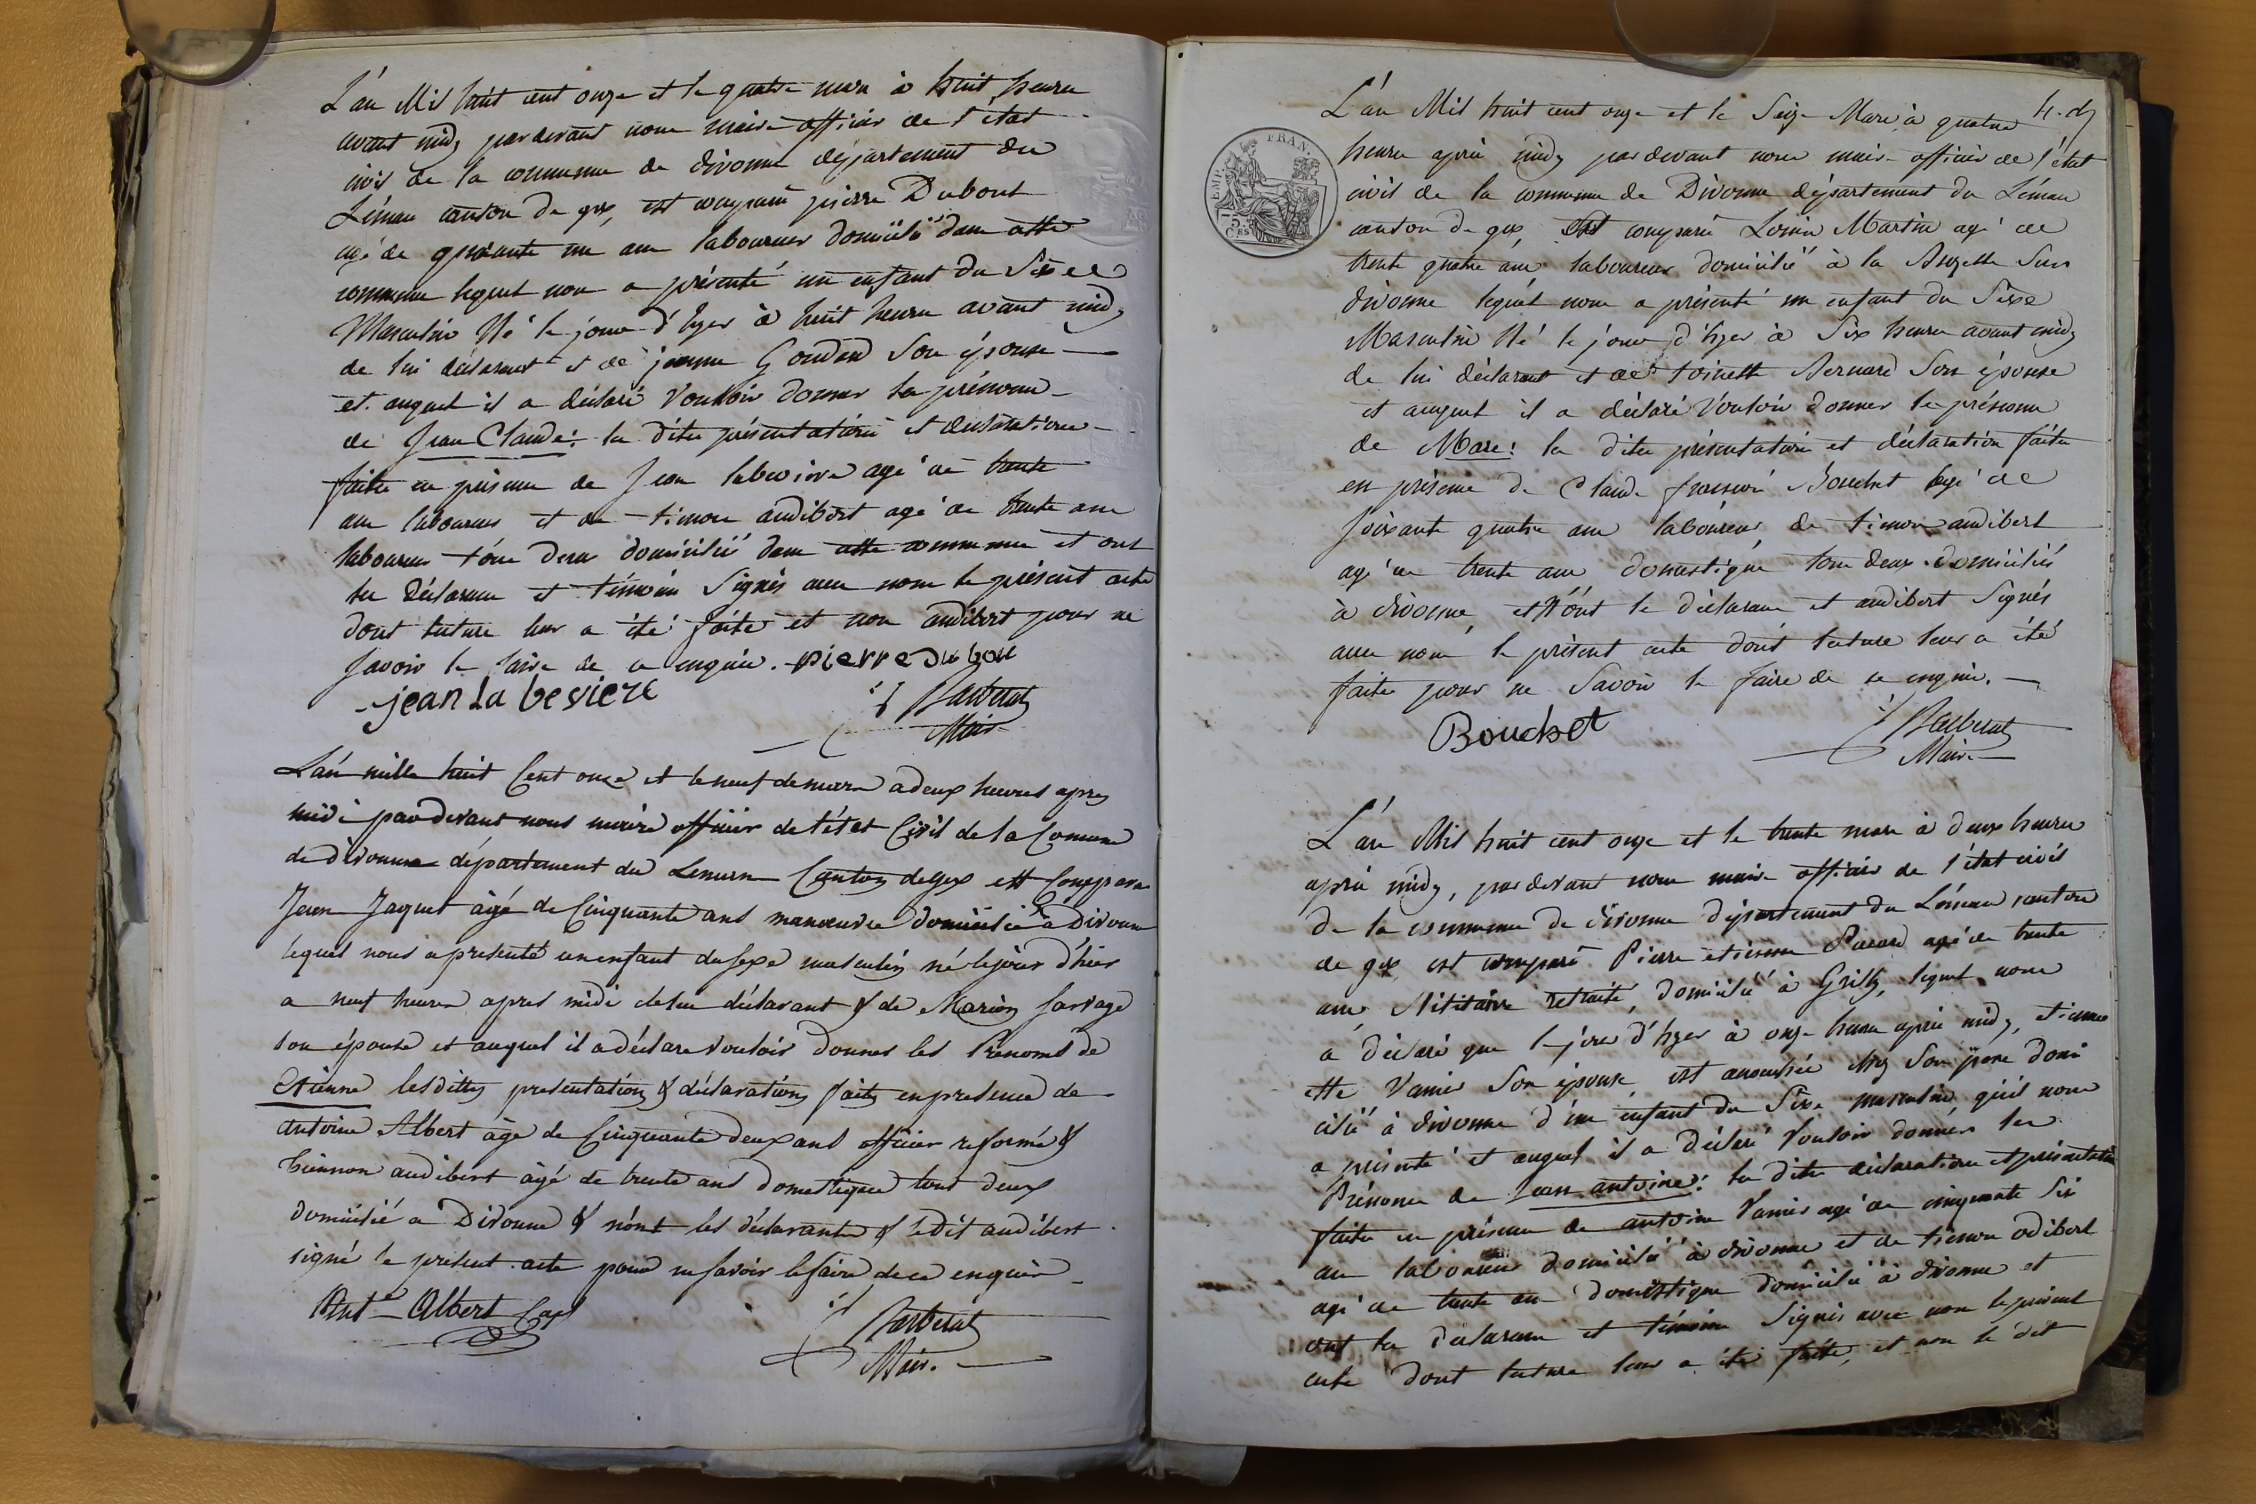 L'an Mil huit cent onze et le quatre mars à huit heures
avant midy pardevant nous maire officier de l'état
civil de la commune de divonne département du
Léman canton de gex, est comparu pierre Dubout
agé de quarante un ans laboureur domicilié dans cette
commune lequel nous a présenté un enfant du Sexe
Masculin Né le jour d'hyer à huit heures avant midy
de lui déclarant et de jeanne Goudard Son épouse
et auquel il a déclaré Vouloir donner les prénoms
de Jean Claude: les dites présentations et déclarations
faites en présence de Jean labeviere agé de trente
ans laboureur et de timon audibert agé de trente ans
laboureur tous deux domiciliés dans cette commune et ont
les déclarans et témoins Signés avec nous le présent acte
dont lecture leur a été faite et non audibert pour ne
Savoir le faire de ce enquis. pierre Dubout
jean La beviere
Barberat
Maire
L'an mille huit Cent onze et le neuf de mars a deux heures apres
midi pardevant nous maire officier de l'état Civil de la Comune
de divonne département du Leman Canton de gex est Comparu
Jean Jaquet âgé de Cinquante ans manœuvre domicilié a Divonne
lequel nous a presenté un enfant du sexe masculin né le jour d'hier
a neuf heures apres midi de lui déclarant & de Marion sauvage
son épouse et auquel il a déclaré vouloir donner les Prenoms de
Etienne lesdittes presentations & déclarations faites en presence de
antoine Albert âgé de Cinquante deux ans officier reformé &
Thimon audibert âgé de trente ans domestique tous deux
domicilié a Divonne & n'ont les déclarants & ledit audibert
signé le present acte pour ne savoir le faire de ce enquis
Ant. Albert Cap
Barberat
Maire.
L'an Mil huit cent onze et le Seize Mars à quatre
heures après midy pardevant nous maire officier de l'état
civil de la commune de Divonne département du Léman
canton de gex, Est comparu Louis Martin agé de
trente quatre ans laboureur domicilié à la Auzette Sur
divonne lequel nous a présenté un enfant du Sexe
Masculin Né le jour d'hyer à Six heures avant midy
de lui déclarant et de toinette Bernard Son épouse
et auquel il a déclaré Vouloir donner le prénom
de Marc: les dites présentations et déclaration faites
en présence de Claude françois Bouchet agé de
Soixante quatre ans laboureur, de timon audibert
agé de trente ans domestique tous deux domiciliés
à divonne, et N'ont le déclarant et audibert Signés
avec nous le présent acte dont lecture leur a été
faite pour ne Savoir le faire de ce enquis.
Bouchet
Barberat
Maire
L'an Mil huit cent onze et le trente mars à deux heures
après midy, pardevant nous maire officier de l'état civil
de la commune de divonne département du Léman canton
de gex, est comparu Pierre étienne Picard agé de trente
ans Militaire retraité, domicilié à Grilly, lequel nous
a déclaré que le jour d'hyer à onze heures après midy, étienne
tte Vanier Son épouse est accouchée chez Son père domi
cilié à divonne d'un enfant du Sexe masculin qu'il nous
a présenté et auquel il a déclaré Vouloir donner les
Prénoms de Jean antoine: les dites déclarations et présentations
faites en présence de antoine Vanier agé de cinquante Six
ans laboureur domicilié à divonne et de timon odibert
agé de trente ans domestique domicilié à divonne et
ont les déclarans et témoins Signés avec nous le présent
acte dont lecture leur a été faite, et non le dit